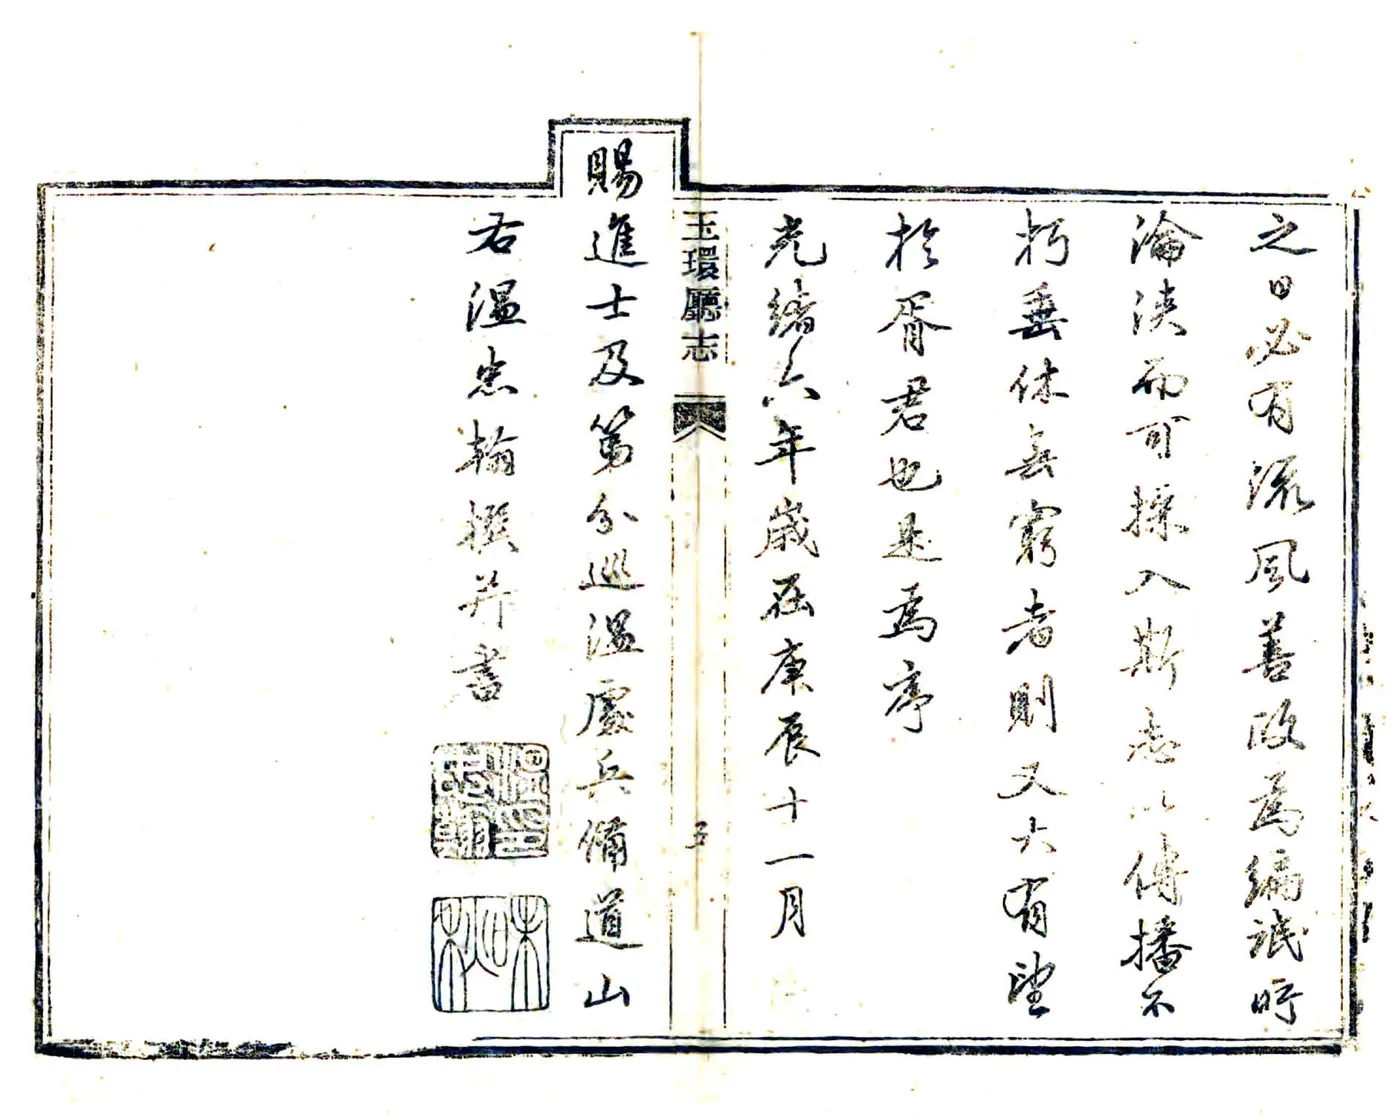 之日必有流風善政為編氓時
淪浹而可採入斯志以傳播不
朽垂休無窮者則又大有望
於胥君也是為序
光緒六年歲在庚辰十一月
玉環廳志
五
賜進士及第分巡溫處兵備道山
右溫忠翰撰并書
味秋